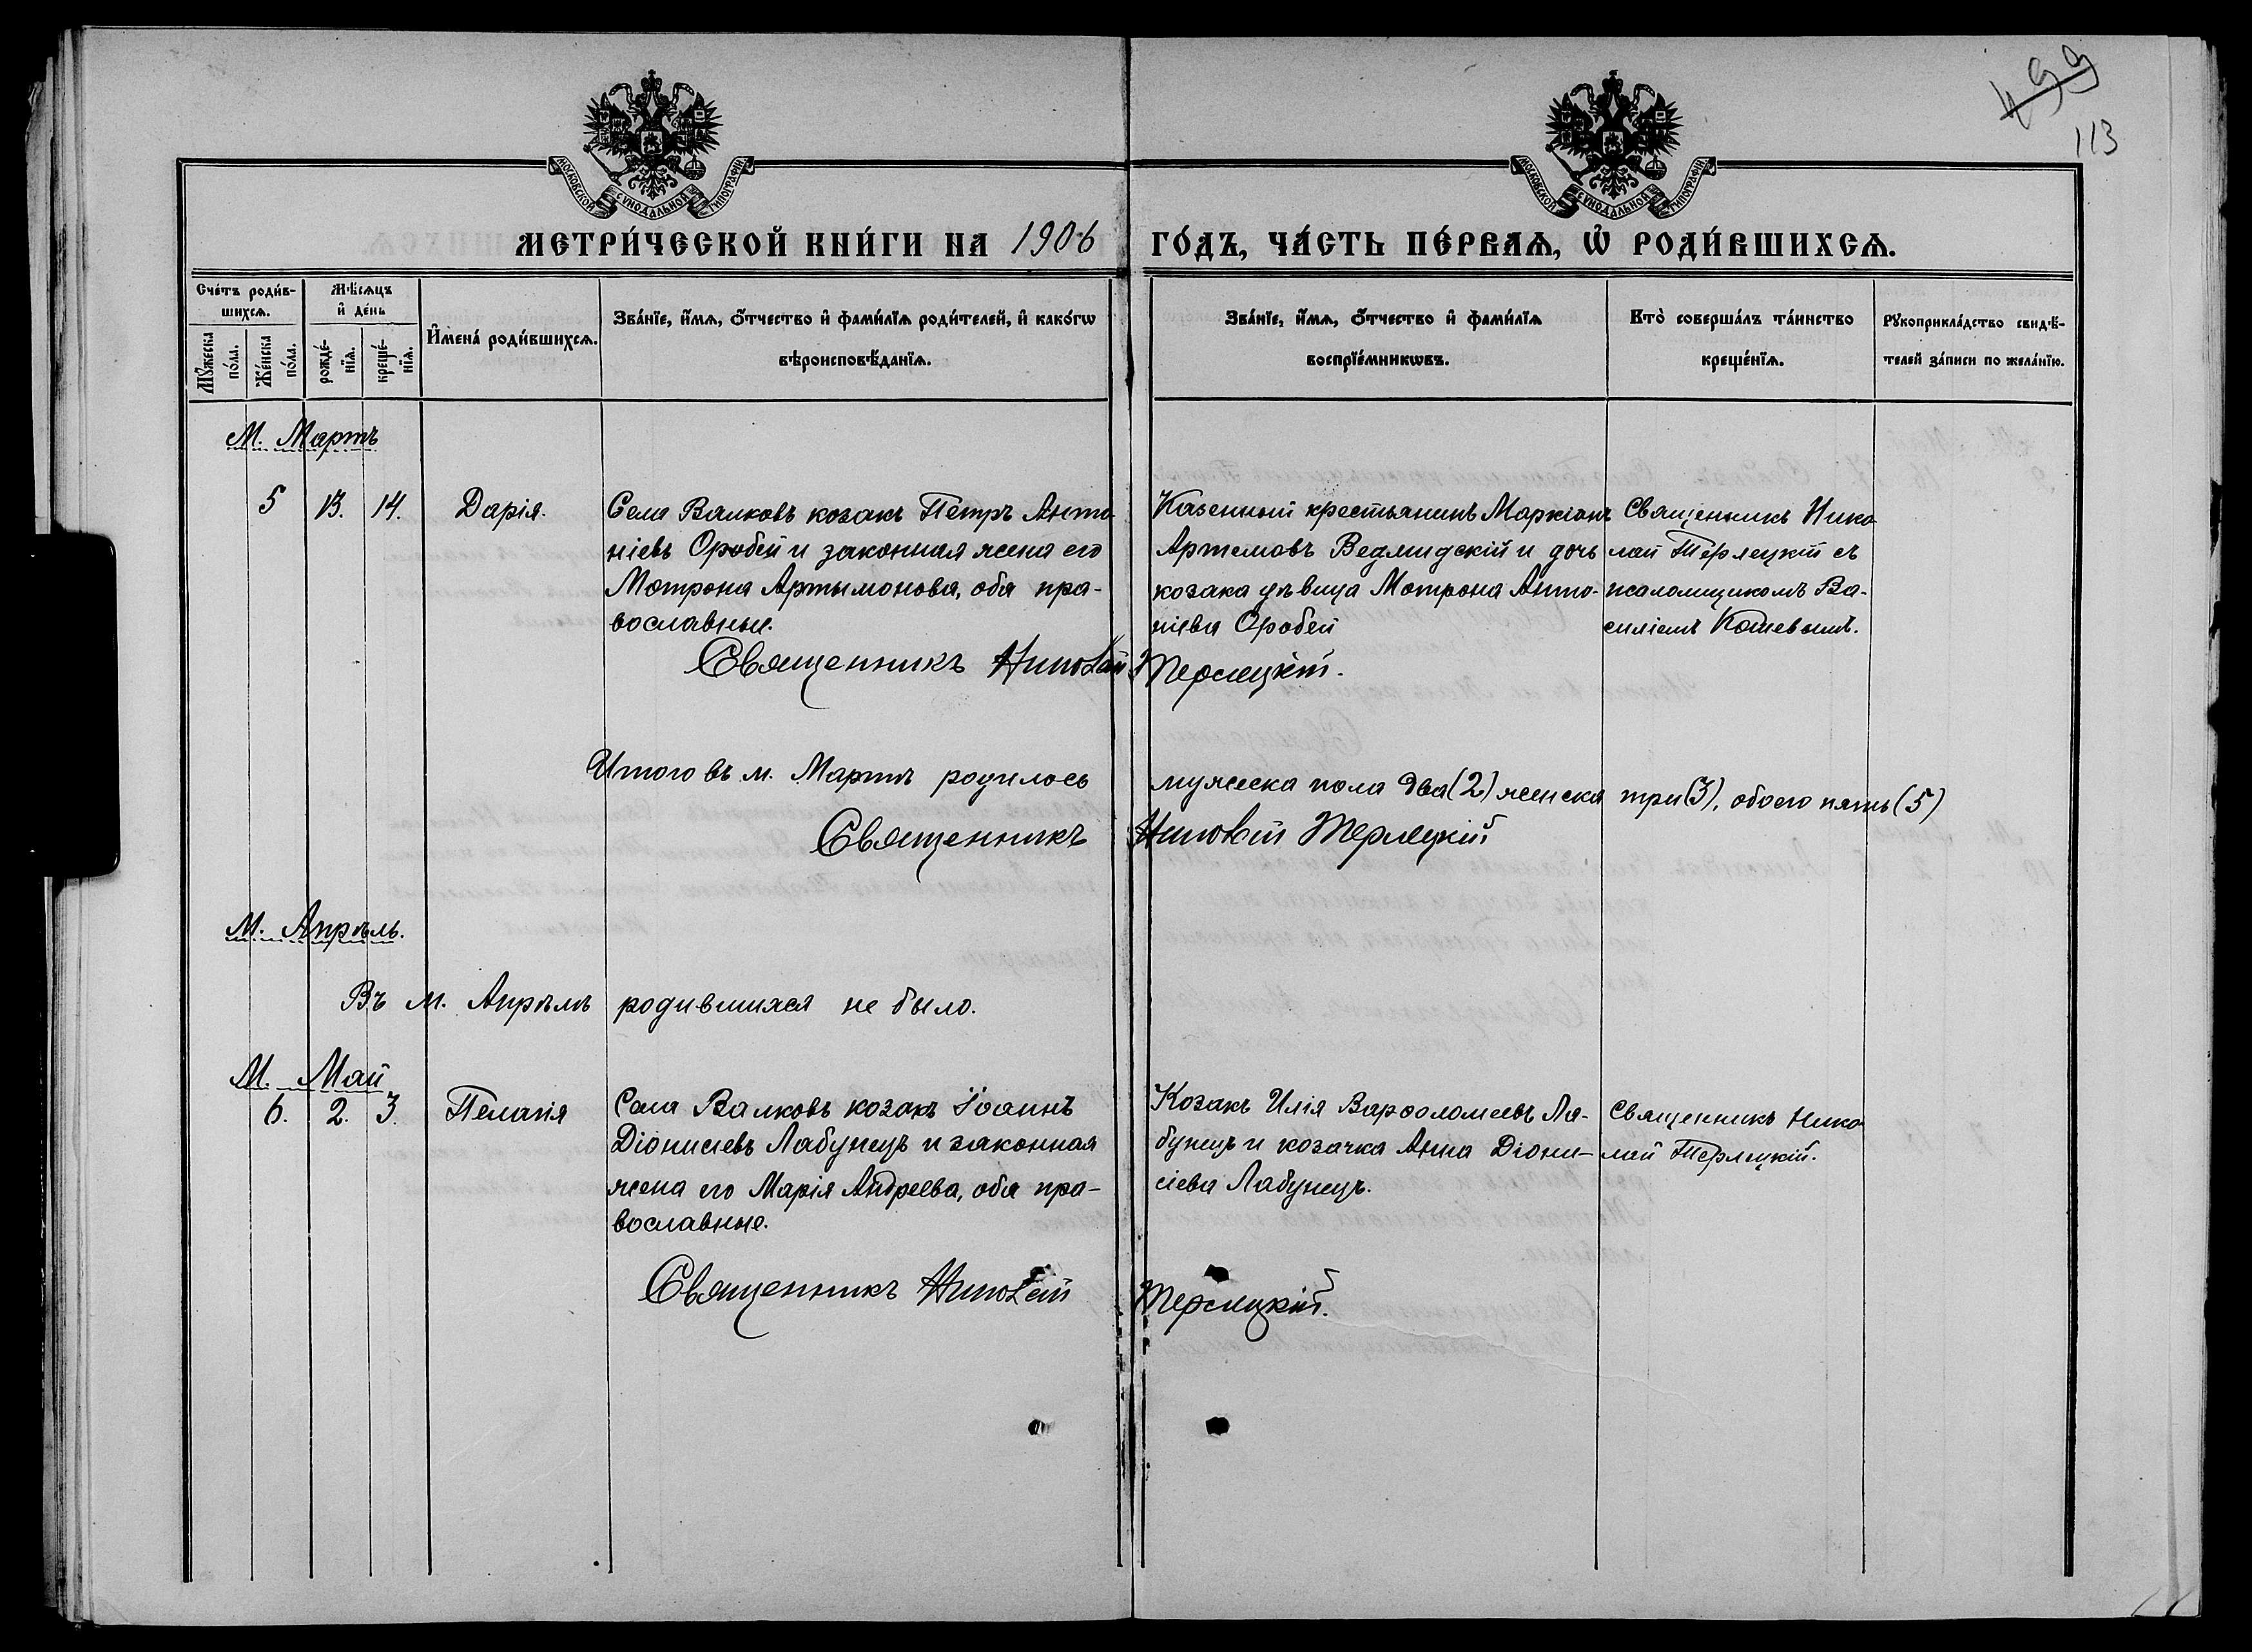 499
113
МОСКОВСКОЙ СѴНОДАЛЬНОЙ ТИПОГРАФІИ
МОСКОВСКОЙ СѴНОДАЛЬНОЙ ТИПОГРАФІИ
МЕТРИ́ЧЕСКОЙ КНИ́ГИ НА 1906 ГО́ДЪ, ЧА́СТЬ ПЕ́РВАѦ, Ѽ РОДИ́ВШИХСѦ.
Сче́тъ роди́в-
шихсѧ.
Мꙋ́жеска по́ла.
Же́нска по́ла.
Мѣ́сѧцъ
и҆ де́нь
рожде́-нїѧ.
креще́-нїѧ.
И҆мена̀ роди́вшихсѧ.
Зва́нїе, и҆́мѧ, ѻ҆́тчество и҆ фами́лїѧ роди́телей, и҆ како́гѡ
вѣроисповѣ́данїѧ.
Зва́нїе, и҆́мѧ, ѻ҆́тчество и҆ фами́лїѧ
воспрїе́мникѡвъ.
Кто̀ соверша́лъ та́инство
креще́нїѧ.
Рꙋкоприкла́дство свидѣ́-
телей за́писи по жела́нїю.
М. Мартъ
5 13. 14. Дарія.
Села Валковъ козакъ Петръ Анто-
ніевъ Оробей и законная жена его
Мотрона Артымонова, оба пра-
вославные.
Казенный крестьянинъ Маркіанъ
Артемовъ Ведмидскій и дочь
козака дѣвица Мотрона Анто-
ніева Оробей
Священникъ Нико
лай Терлецкій съ
псаломщикомъ Ва-
силіемъ Кошевымъ.
Священникъ Николай Терлецкій.
Итого въ м. Мартѣ родилось мужеска пола два (2) женска три (3), обоего пять (5)
Священникъ Николай Терлецкій
М. Апрѣль.
Въ м. Апрѣлѣ родившихся не было.
М. Май
6. 2. 3. Пелагія
Села Валковъ козакъ Іоаннъ
Діонисіевъ Лабунецъ и законная
жена его Марія Андреева, оба пра-
вославные.
Козакъ Илія Варѳоломеевъ Ла-
бунецъ и козачка Анна Діони-
сіева Лабунецъ.
Священникъ Нико
лай Терлецкій.
Священникъ Николай Терлецкій.